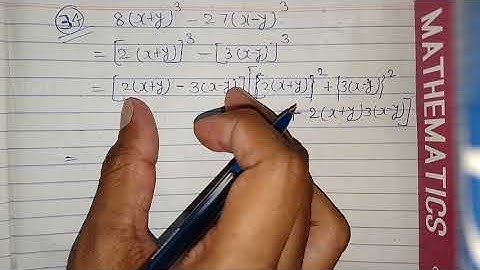 34 8(x+y)³ - 27(x-y)³
= [2(x+y)]³ - [3(x-y)]³
= [2(x+y) - 3(x-y)][{2(x+y)}² + {3(x-y)}²
2(x+y)3(x-y)]
=
MATHEMATICS